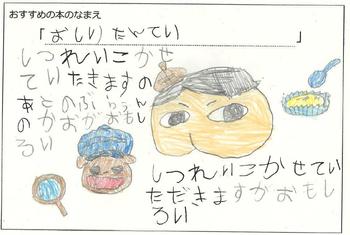 おすすめの本のなまえ
「おしりたんてい」
しつれいこかせ
ていたきますの
あとのふらうん
のかおがおもし
ろい
しつれいこかせてい
ただきますがおもし
ろい